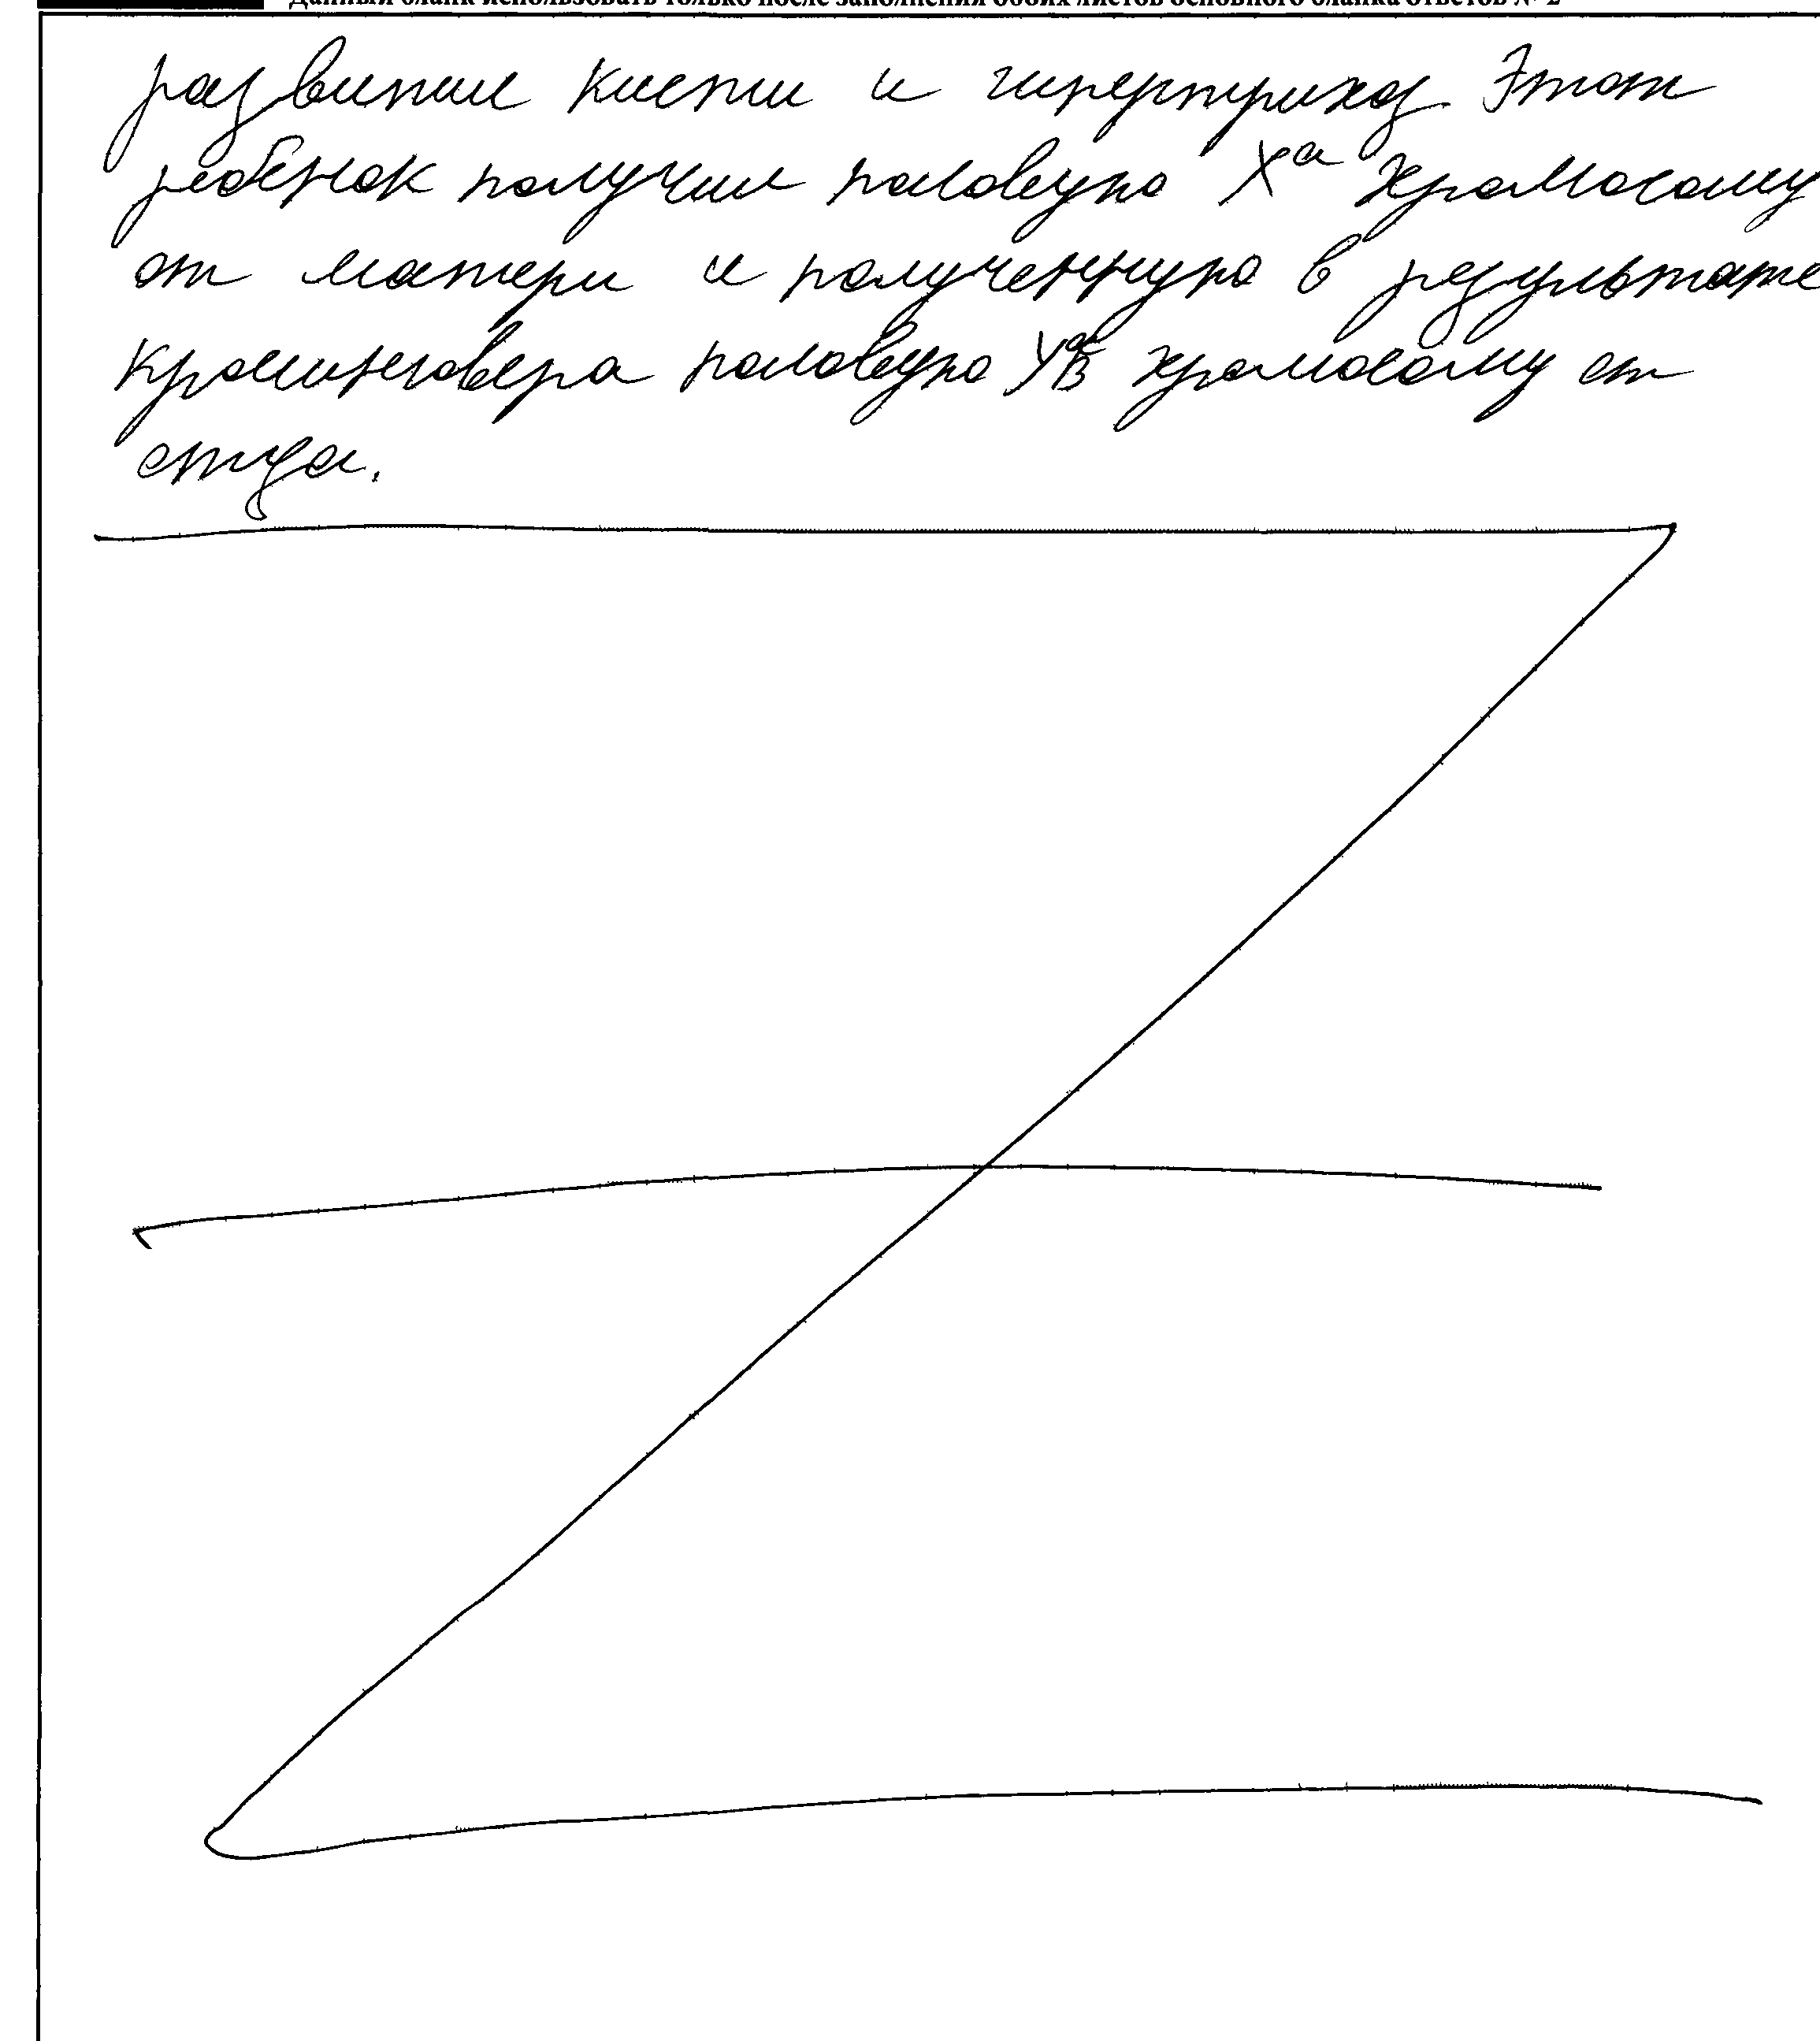 Данный бланк использовать только после заполнения обоих листов основного бланка ответов № 2
развитие кисти и гипертрихоз. Этот
ребёнок получил половую Xᵃ хромосому
от матери и полученную в результате
кроссинговера половую Yᵃᴮ хромосому от
отца.